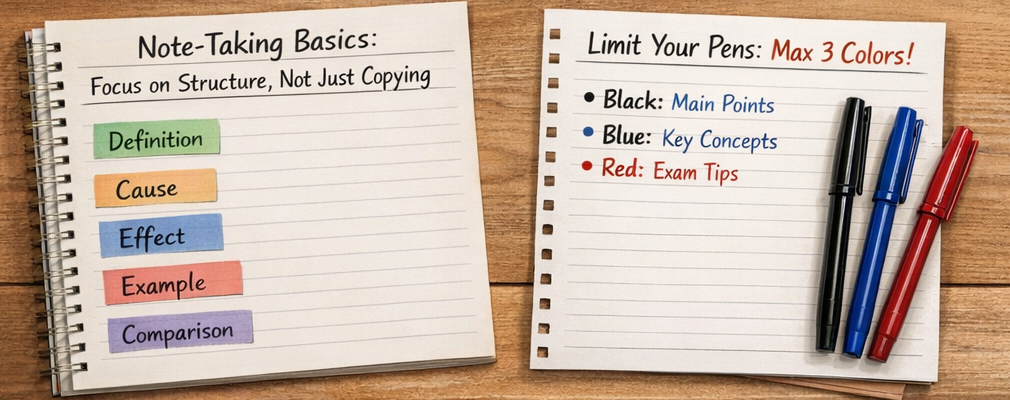 Note-Taking Basics:
Focus on Structure, Not Just Copying
Definition
Cause
Effect
Example
Comparison
Limit Your Pens: Max 3 Colors!
• Black: Main Points
• Blue: Key Concepts
• Red: Exam Tips